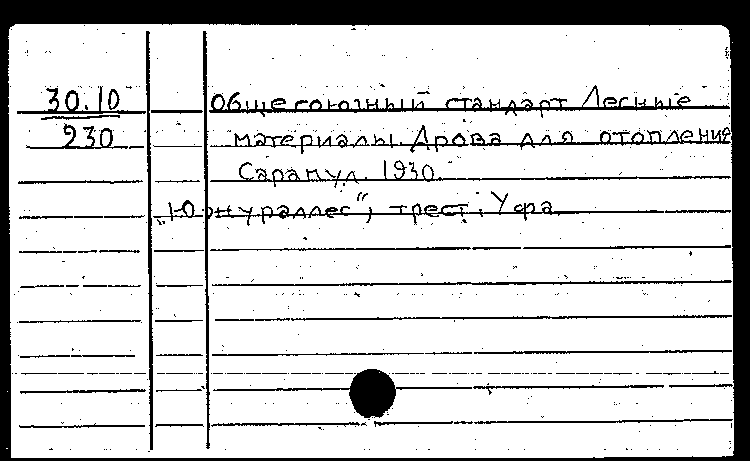 30.10 Общесоюзный стандарт Лесные
230 материалы. Дрова для отопления
Сарапул. 1930.
„Южураллес", трест. Уфа